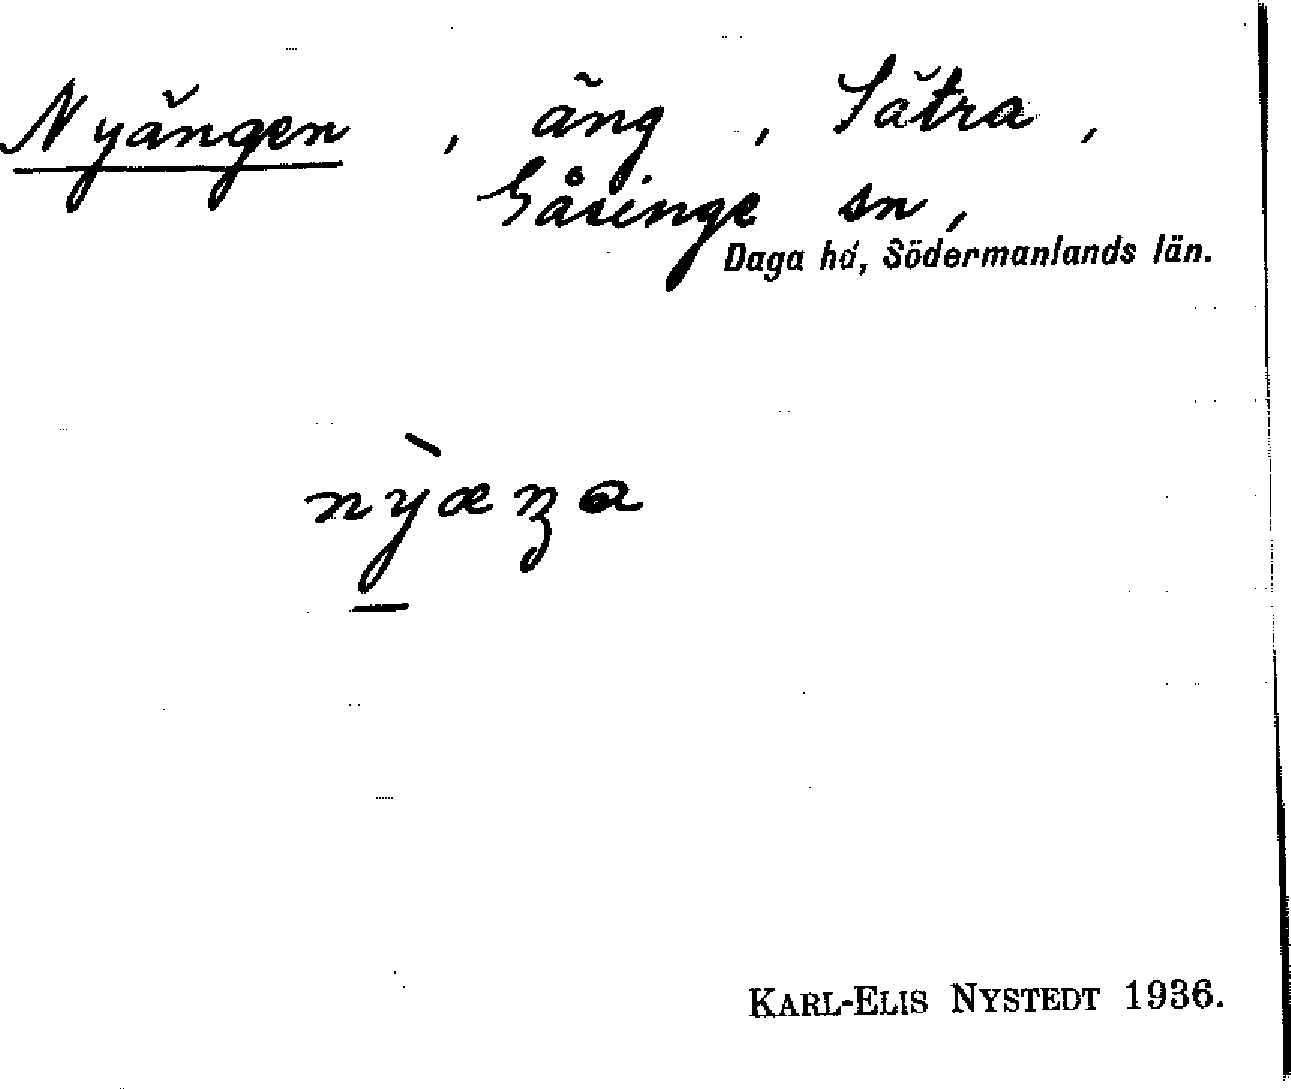 Nyängen, äng, Sätra,
Gåsinge sn,
Daga hd, Södermanlands län.
nỳæŋa
KARL-ELIS NYSTEDT 1936.